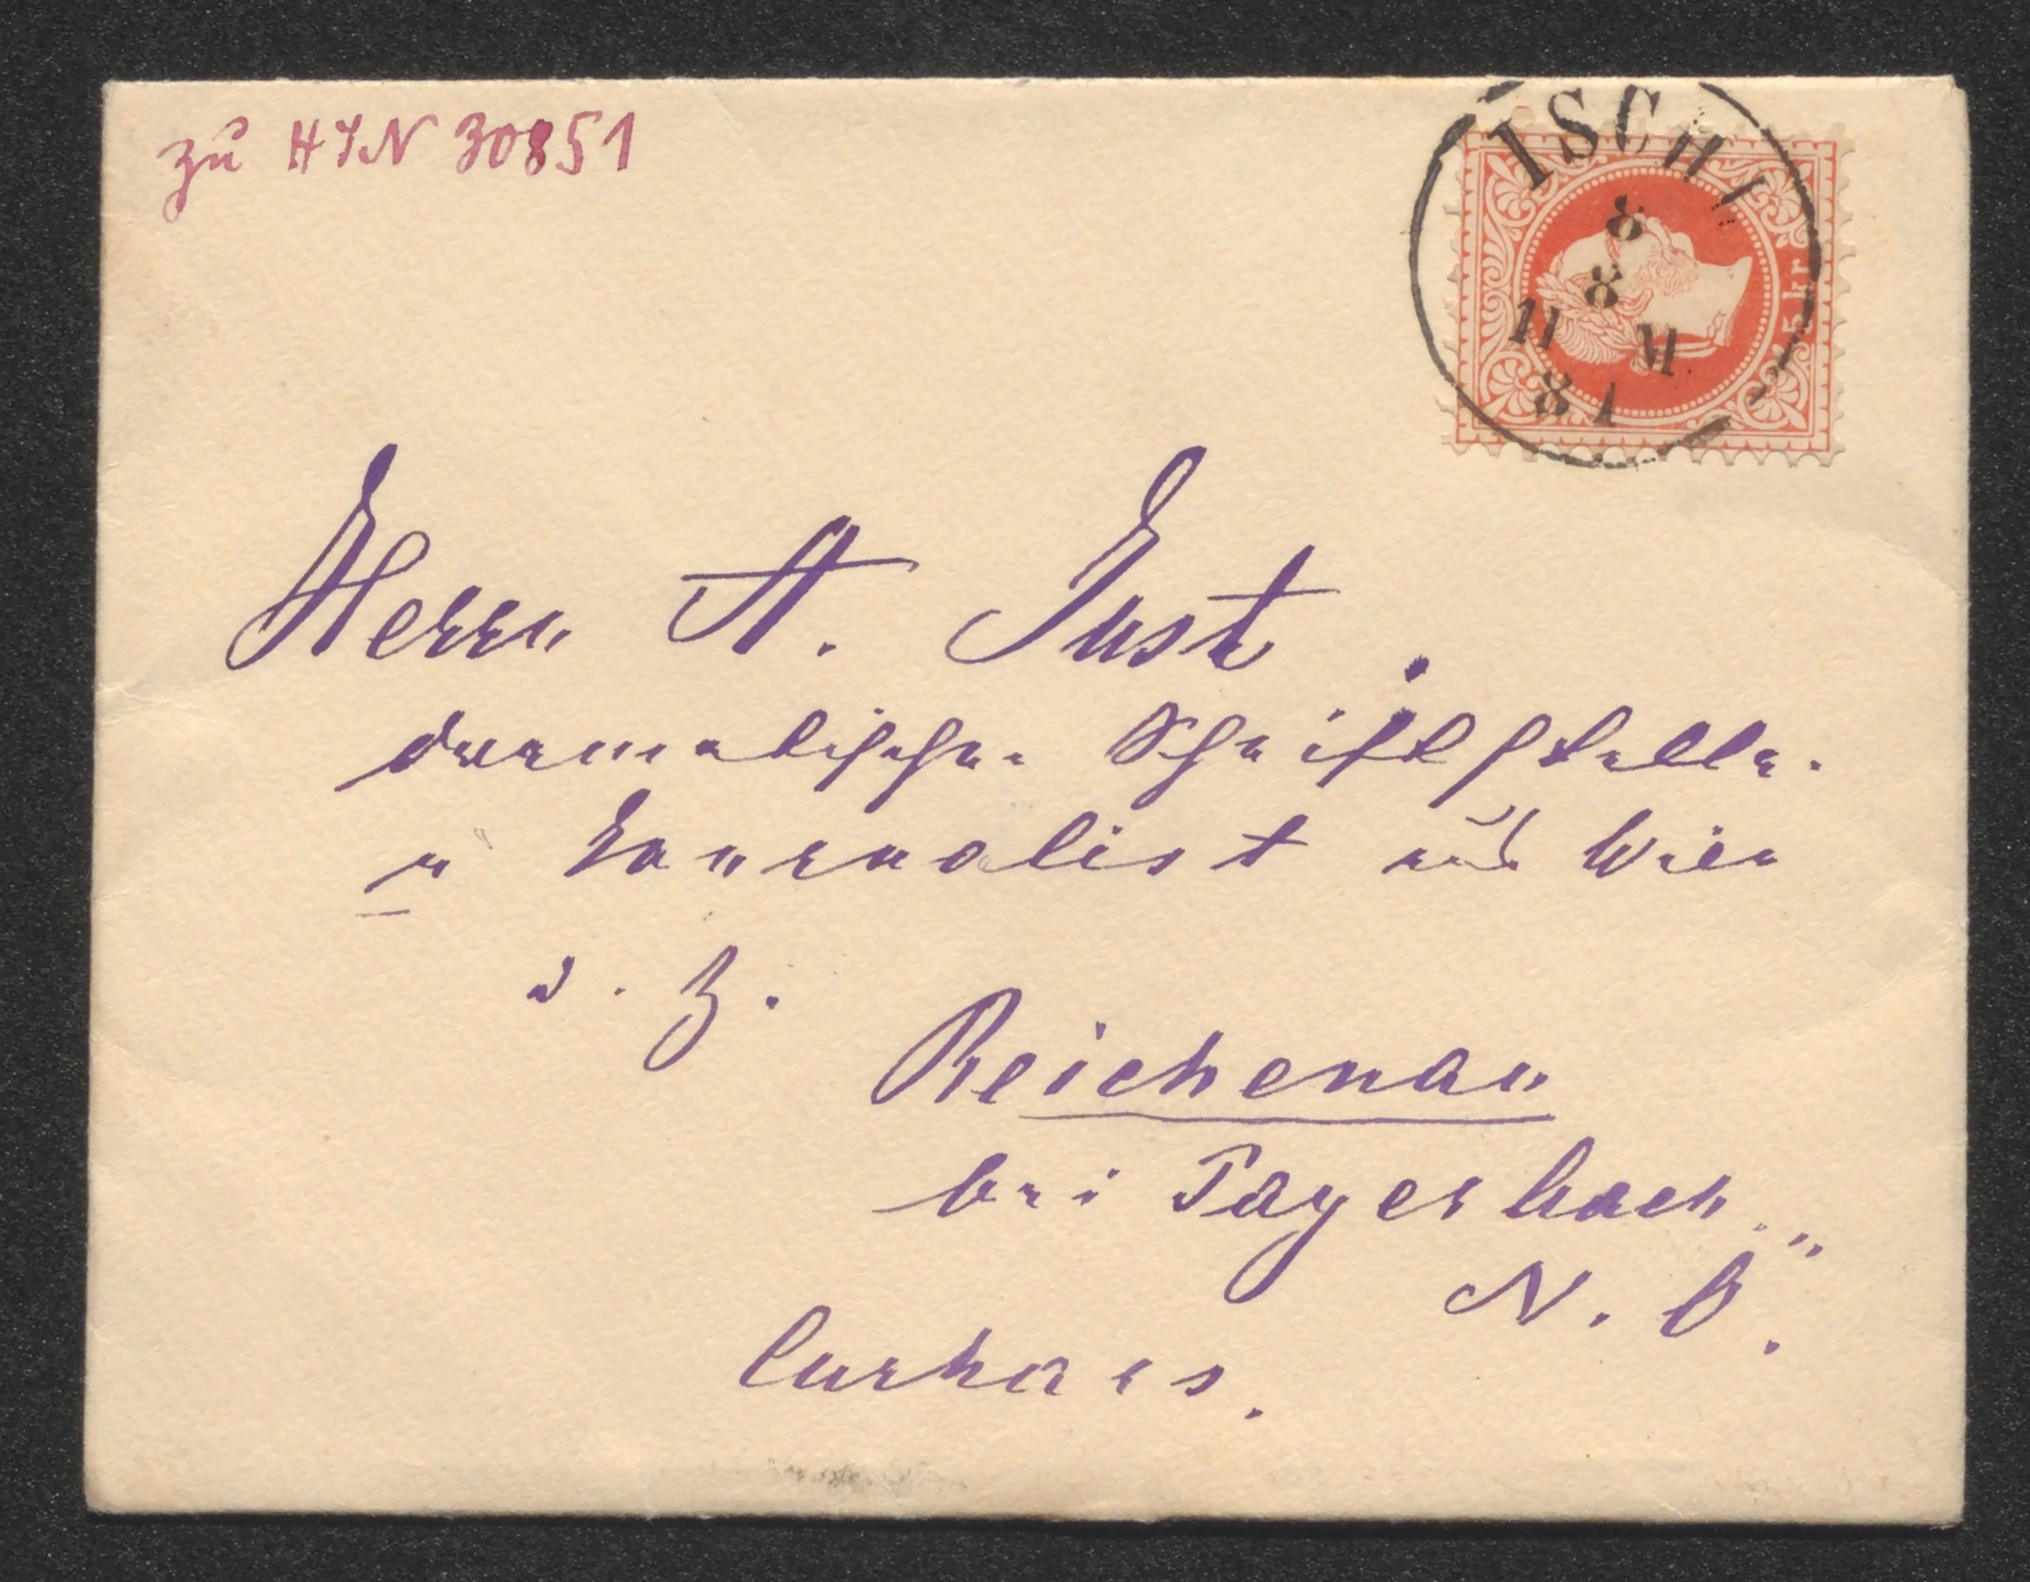 zu HIN 30851
ISCHL
8
8
11 M
81
5 kr
Herrn A. Just.
dramatischer Schriftsteller
u Journalist aus Wien
d. Z.
Reichenau
bei Payerbach
N. Ö.
Curhaus.